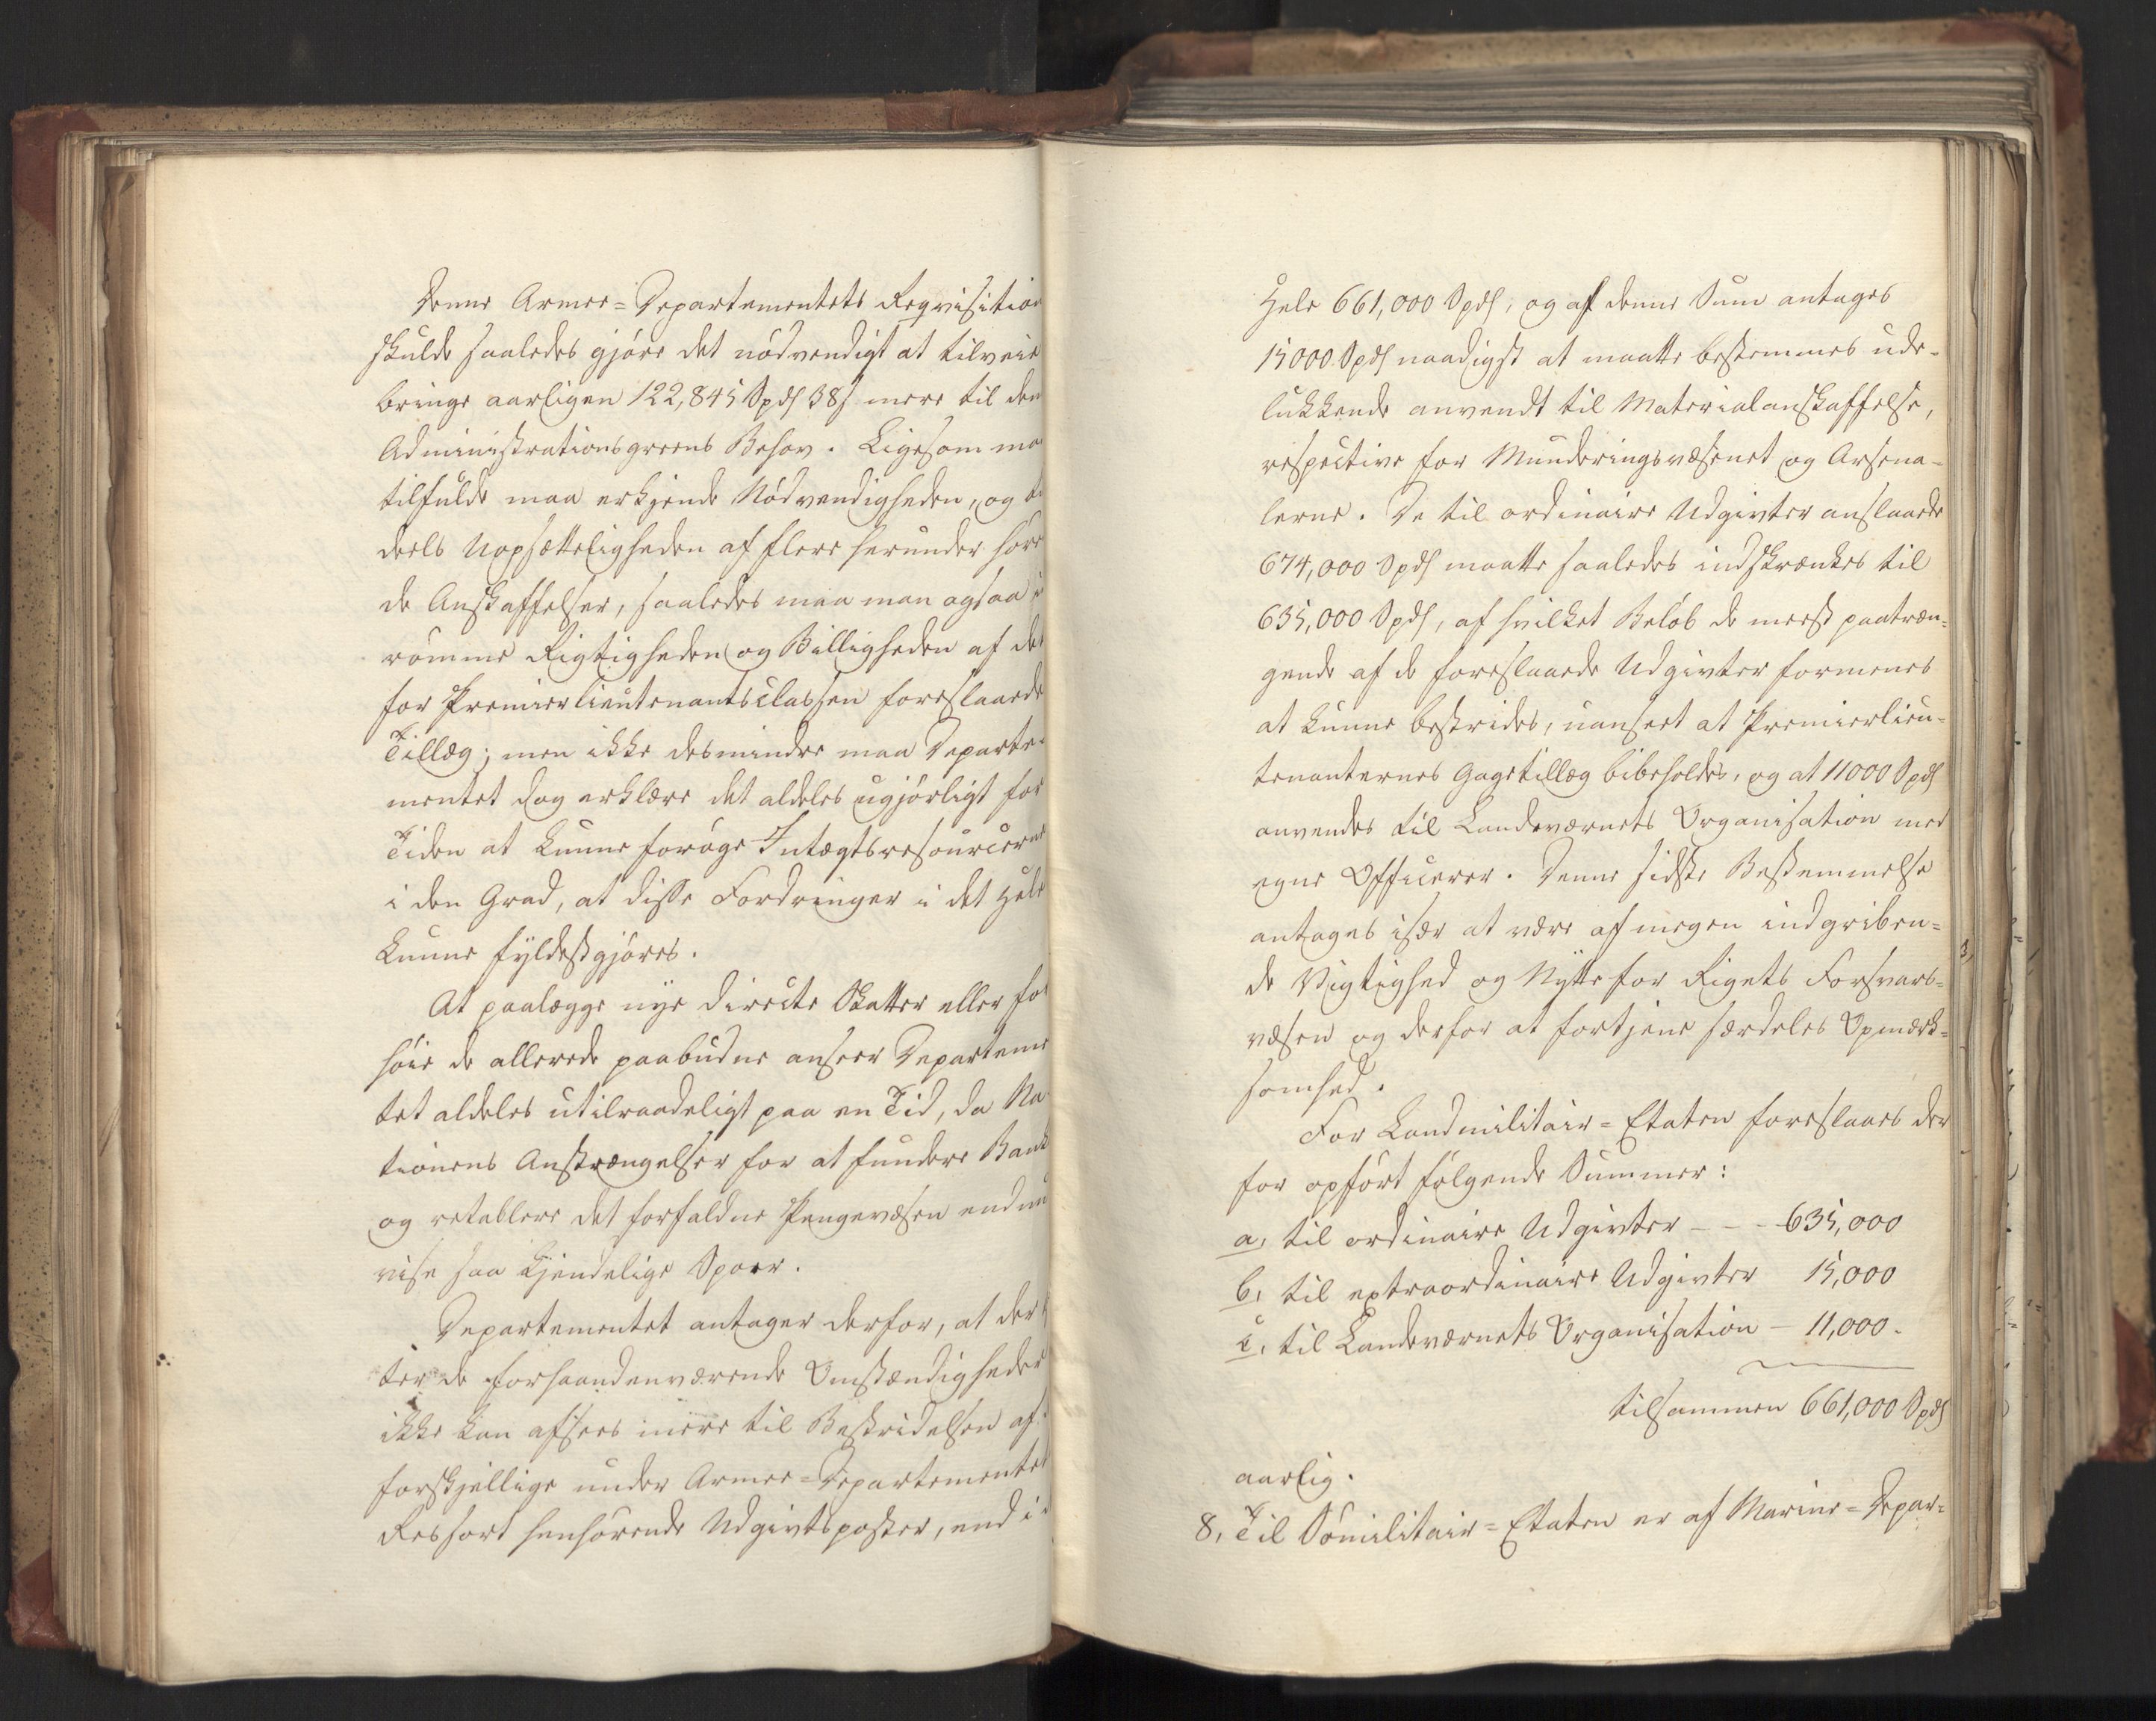 Denne Armee=Departementets Reqvisition
skulde saaledes gjøre det nødvendigt at tilveie
bringe aarligen 122,845 Spds 38s mere til den
Administrationsgreens Behov. Ligesom ma
tilfulde maa erkjende Nødvendigheden, og
deels Uopsætteligheden af flere herunder høre
de Anskaffelser, saaledes maa man ogsaa
rømme Rigtigheden og Billigheden af det
for Premierlieutenantsclassen foreslaaede
Tillæg; men ikke desmindre maa Departe-
mentet dog erklære det aldeles ugjørligt for
Tiden at kunne forøge Intægtsresourcerne
i den Grad, at disse Fordringer i det Hele
kunne fyldestgjøres.
At paalægge nye directe Skatter eller for
høie de allerede paabudne anseer Departeme
tet aldeles utilraadeligt paa en Tid, da Na-
tionens Anstrængelser for at fundere Bank
og retablere det forfaldne Pengevæsen endnu
vise saa kjendelige Spoer.
Departementet antager derfor, at der
ter de forhaandenværende Omstændigheder
ikke kan afsees mere til Bestridelsen af
forskjellige under Armee=Departementet
Ressort henhørende Udgivtsposter, end i
Hele 661,000 Spds, og af denne Sum antages
15000 Spds naadigst at maatte bestemmes ude-
lukkende anvendt til Materialanskaffelse,
respective for Munderingsvæsenet og Arsena-
lerne. De til ordinaire Udgivter anslaaede
674,000 Spds maatte saaledes indskrænkes til
635,000 Spds, af hvilket Beløb de meest paatræn=
gende af de foreslaaede Udgivter formenes
at kunne bestrides, uanseet at Premierlieu=
tenanternes Gagetillæg bibeholdes, og at 11000 Spds
anvendes til Landeværnets Organisation med
egne Officerer. Denne sidste Bestemmelse
antages især at være af megen indgriben=
de Vigtighed og Nytte for Rigets Forsvars=
væsen og derfor at fortjene særdeles Opmærk=
somhed.
For Landmilitair=Etaten foreslaaes der
for opført følgende Summer:
a, til ordinaire Udgivter - - - 635,000
b, til extraordinaire Udgivter 15,000
c, til Landeværnets Organisation - 11,000.
tilsammen 661,000 Spds
aarlig.
8, Til Sømilitair=Etaten er af Marine=Depar=